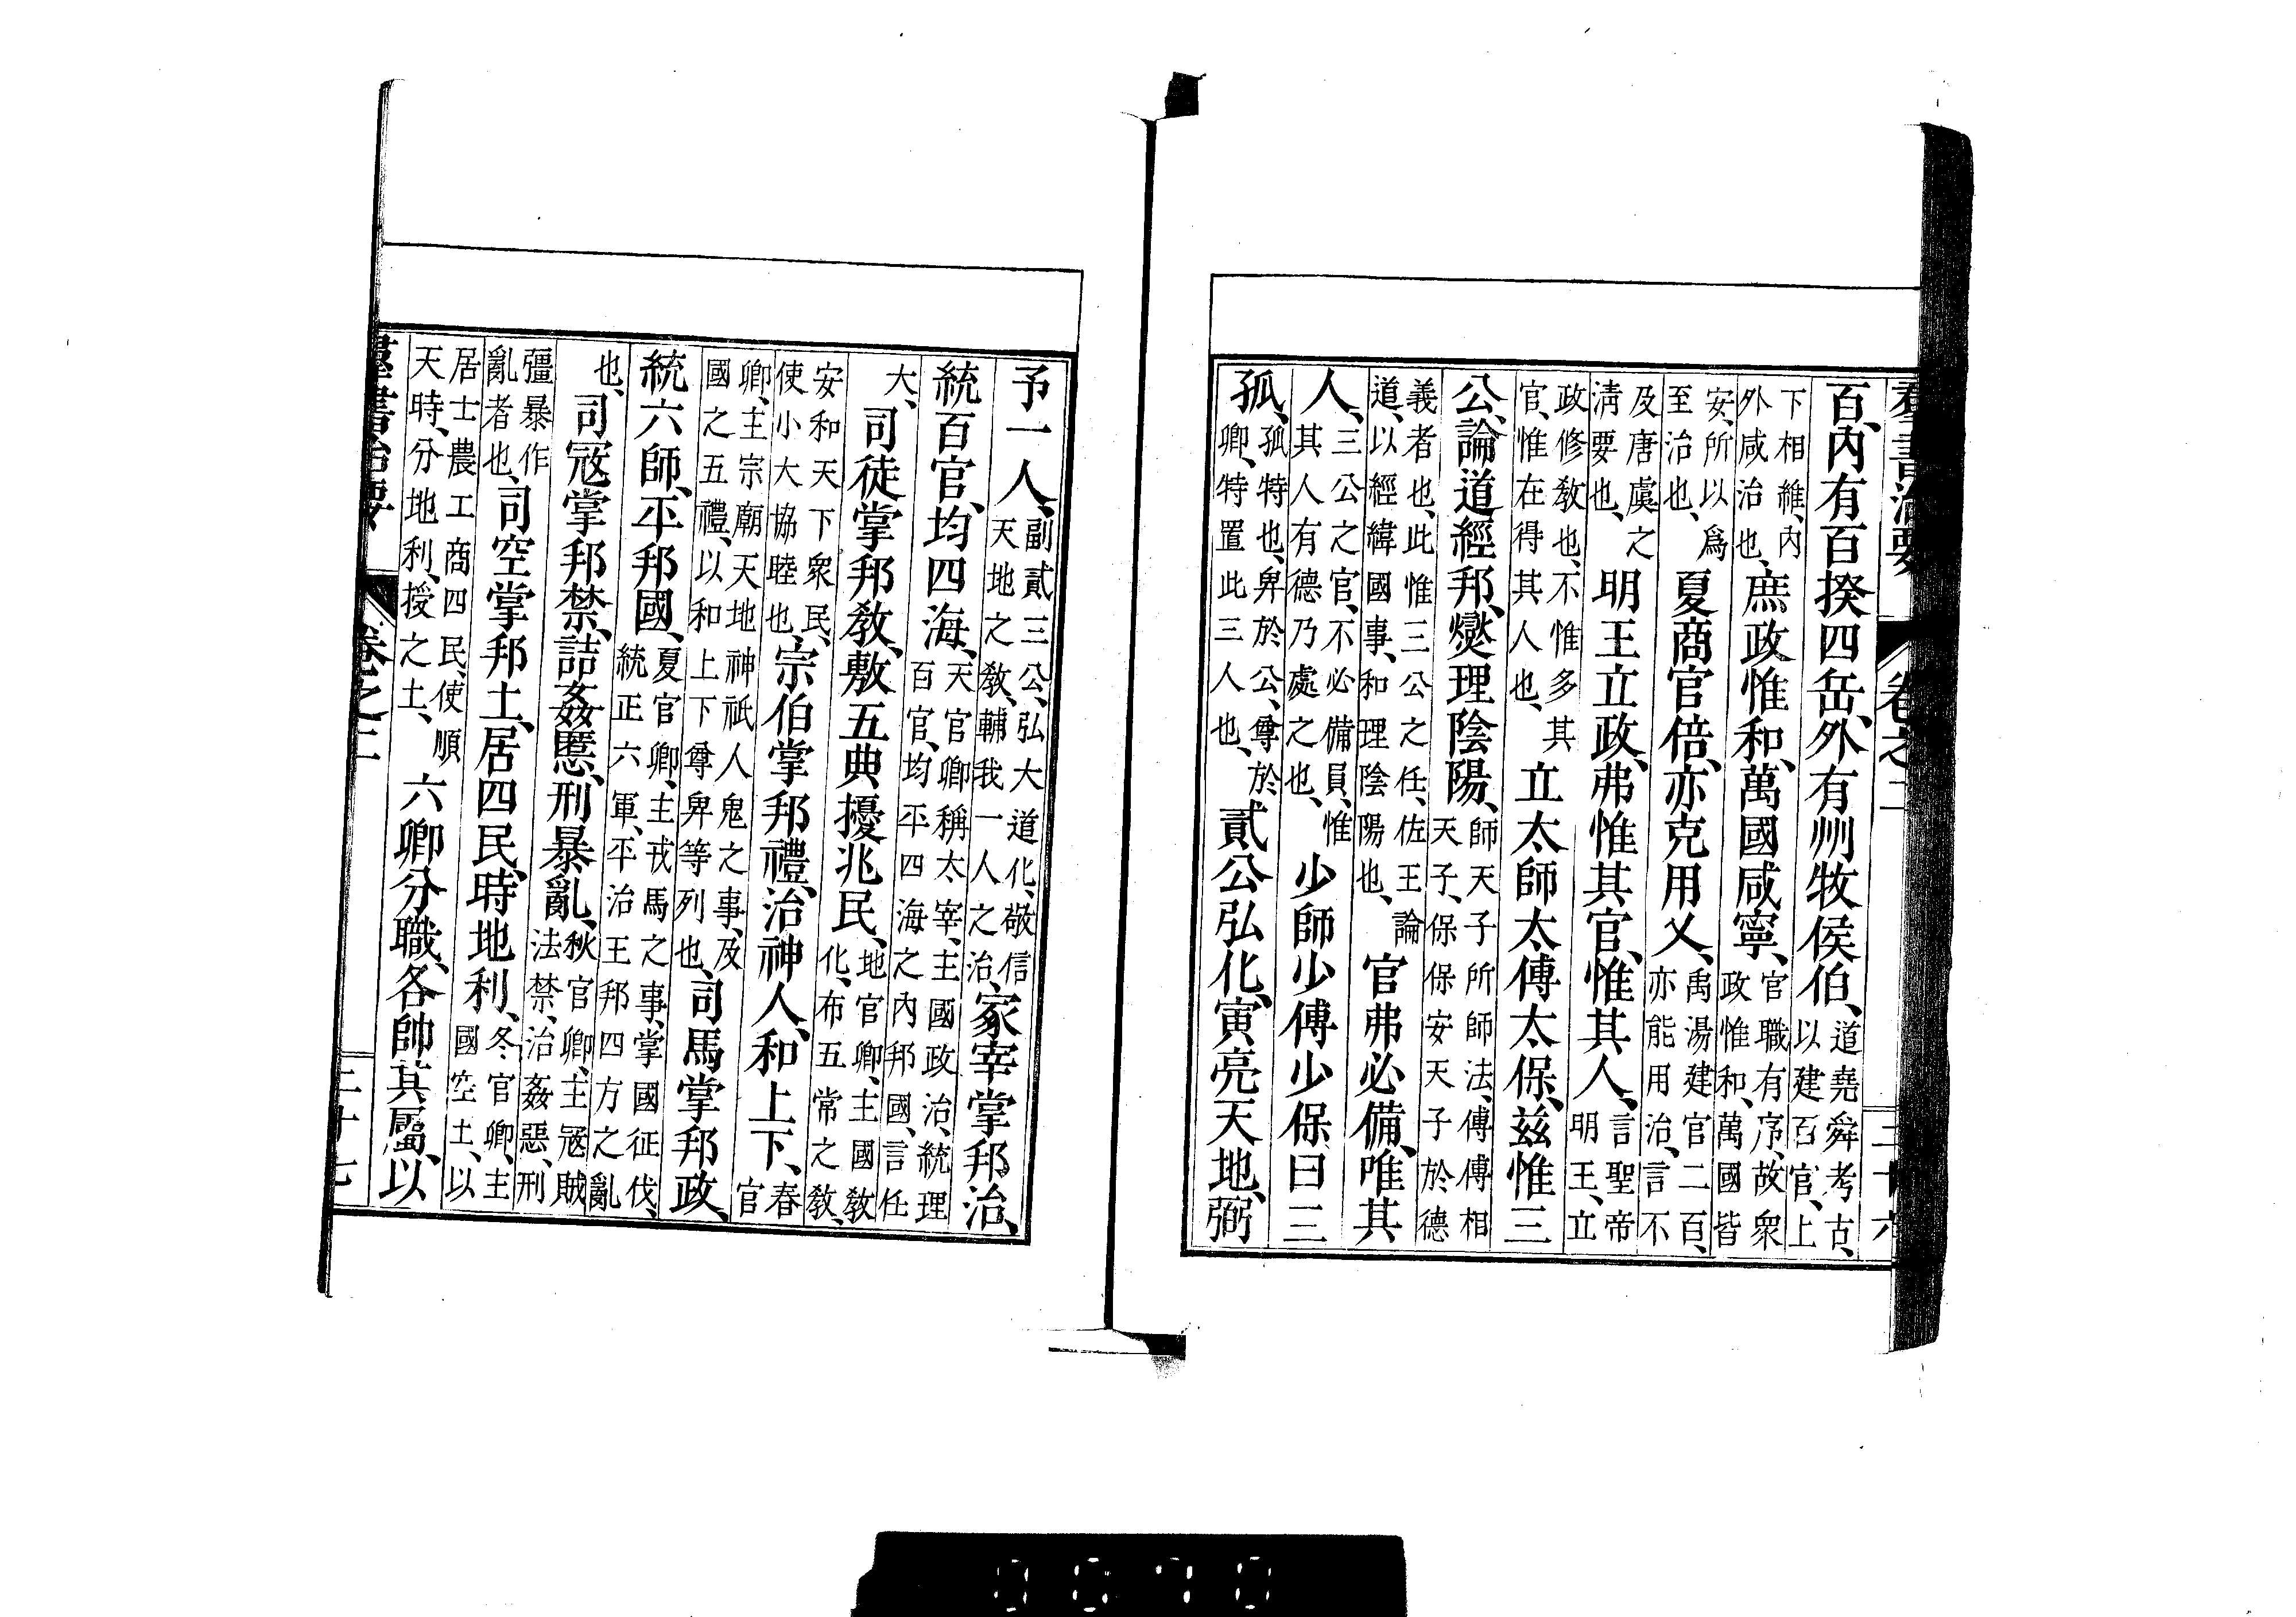 羣書治要　卷之二　三十六
百、內有百揆四岳、外有州牧侯伯、道堯舜考古、以建百官、上
下相維、內外咸治也、庶政惟和、萬國咸寧、官職有序、故衆政惟和、萬國皆
安、所以爲至治也、夏商官倍、亦克用乂、禹湯建官二百、亦能用治、言不
及唐虞之淸要也、明王立政、弗惟其官、惟其人、言聖帝明王、立
政修敎也、不惟多其官、惟在得其人也、立太師太傅太保、茲惟三
公、論道經邦、燮理陰陽、師天子所師法、傅傅相天子、保保安天子於德
義者也、此惟三公之任、佐王論道、以經緯國事、和理陰陽也、官弗必備、唯其
人、三公之官、不必備員、惟其人有德乃處之也、少師少傅少保曰三
孤、孤特也、卑於公、尊於卿、特置此三人也、貳公弘化、寅亮天地、弼
予一人、副貳三公、弘大道化、敬信天地之敎、輔我一人之治、冢宰掌邦治、
統百官、均四海、天官卿稱太宰、主國政治、統理百官、均平四海之內邦國、言任
大、司徒掌邦敎、敷五典、擾兆民、地官卿、主國敎化、布五常之敎、
安和天下衆民、使小大協睦也、宗伯掌邦禮、治神人、和上下、春官
卿、主宗廟天地神祇人鬼之事、及國之五禮、以和上下尊卑等列也、司馬掌邦政、
統六師、平邦國、夏官卿、主戎馬之事、掌國征伐、統正六軍、平治王邦四方之亂
也、司寇掌邦禁、詰姦慝、刑暴亂、秋官卿、主寇賊法禁、治姦惡、刑
彊暴作亂者也、司空掌邦土、居四民、時地利、冬官卿、主國空土、以
居士農工商四民、使順天時、分地利、授之土、六卿分職、各帥其屬、以
羣書治要　卷之二　三十七
0070